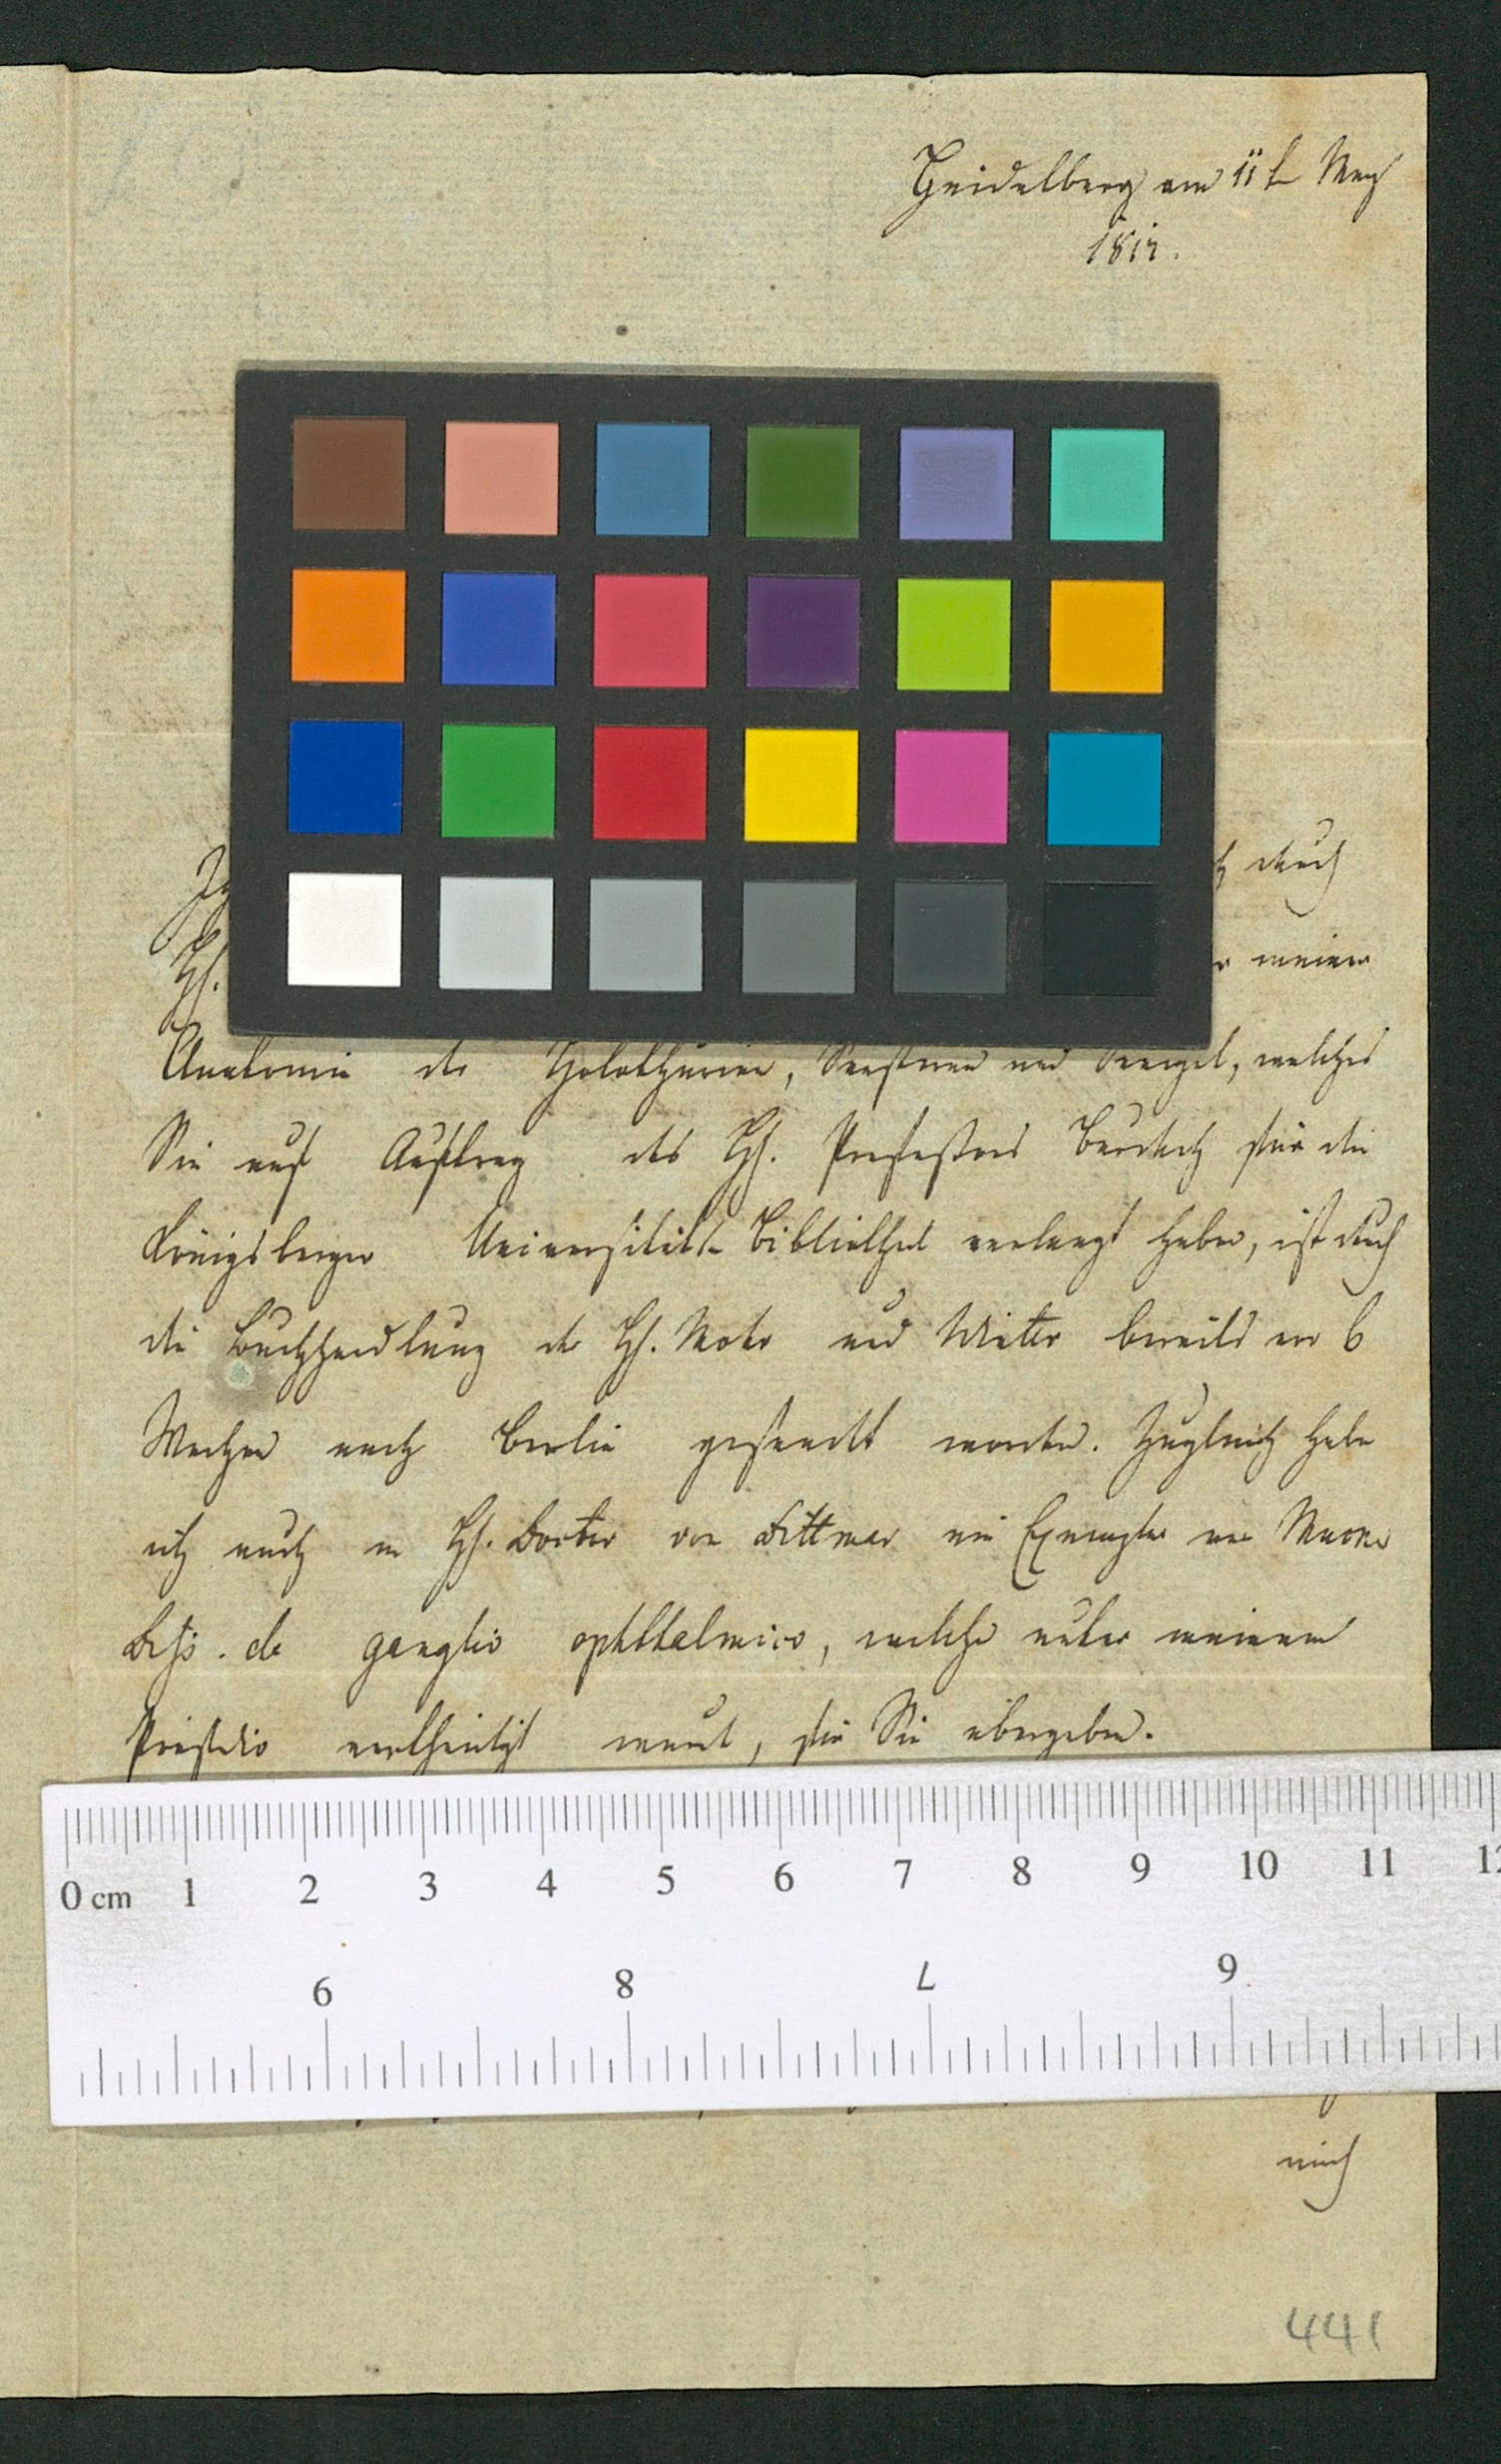 Heidelberg am 11t May
1817.
durch
H.
meiner
Anatomie der Holothurien, Seesterne und Seeigel, welches
Sie auf Auftrag des H. Professors Burdach für die
Königsberger Universitäts Bibliothek verlangt haben, ist durch
die Buchhandlung der H. Mohr und Winter bereits vor 6
Wochen nach Berlin gesandt worden. Zugleich habe
ich auch an H. Doctor von Dittmar ein Exemplar von Muck
Diss. de ganglio ophthalmico, welche unter meinem
Praesidio vertheidigt wurde, für Sie übergeben.
0 cm 1 2 3 4 5 6 7 8 9 10 11
6 8 L 9
mich
441